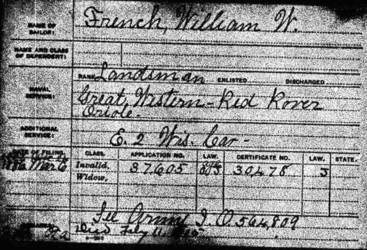 NAME OF SAILOR: French, William W.
NAME AND CLASS OF DEPENDENT:
NAVAL SERVICE: RANK Landsman ENLISTED DISCHARGED
Great Western - Red Rover
Oriole
ADDITIONAL SERVICE: E. 2 Wis. Cav -
DATE OF FILING. CLASS. APPLICATION NO. LAW. CERTIFICATE NO. LAW. STATE.
Invalid, 37605 30478
Widow,
See Army I. O. 564,809
Died July 11